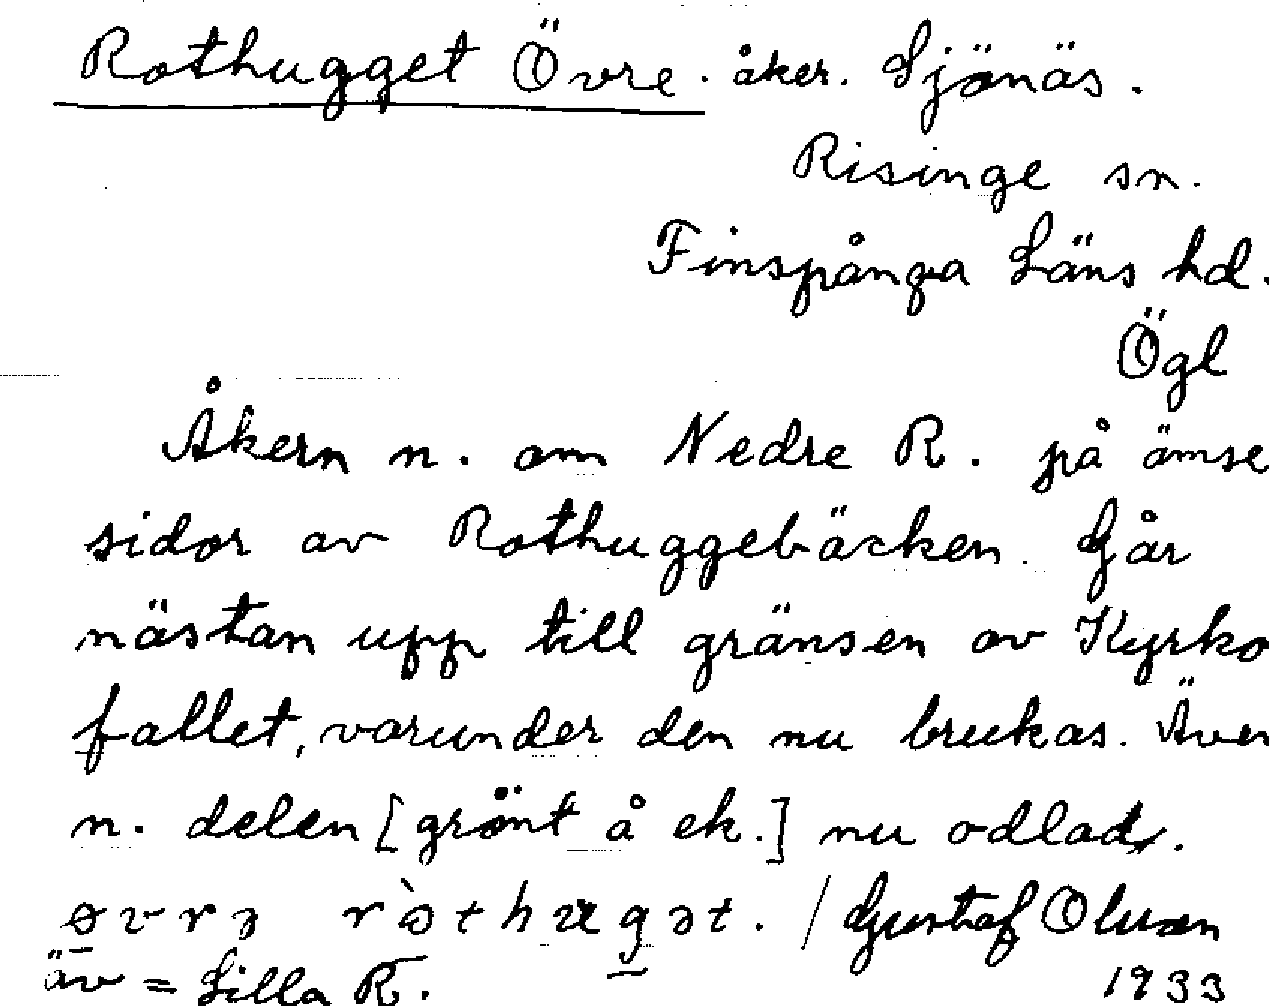 Rothugget Övre. åker. Sjönäs.
Risinge sn.
Finspånga Läns hd.
Ögl
Åkern n. om Nedre R. på ömse
sidor av Rothuggebäcken. Går
nästan upp till gränsen av Kyrko
fallet, varunder den nu brukas. Även
n. delen [grönt å ek.] nu odlad.
/ Gustaf Olsson
äv = Lilla R.
1933